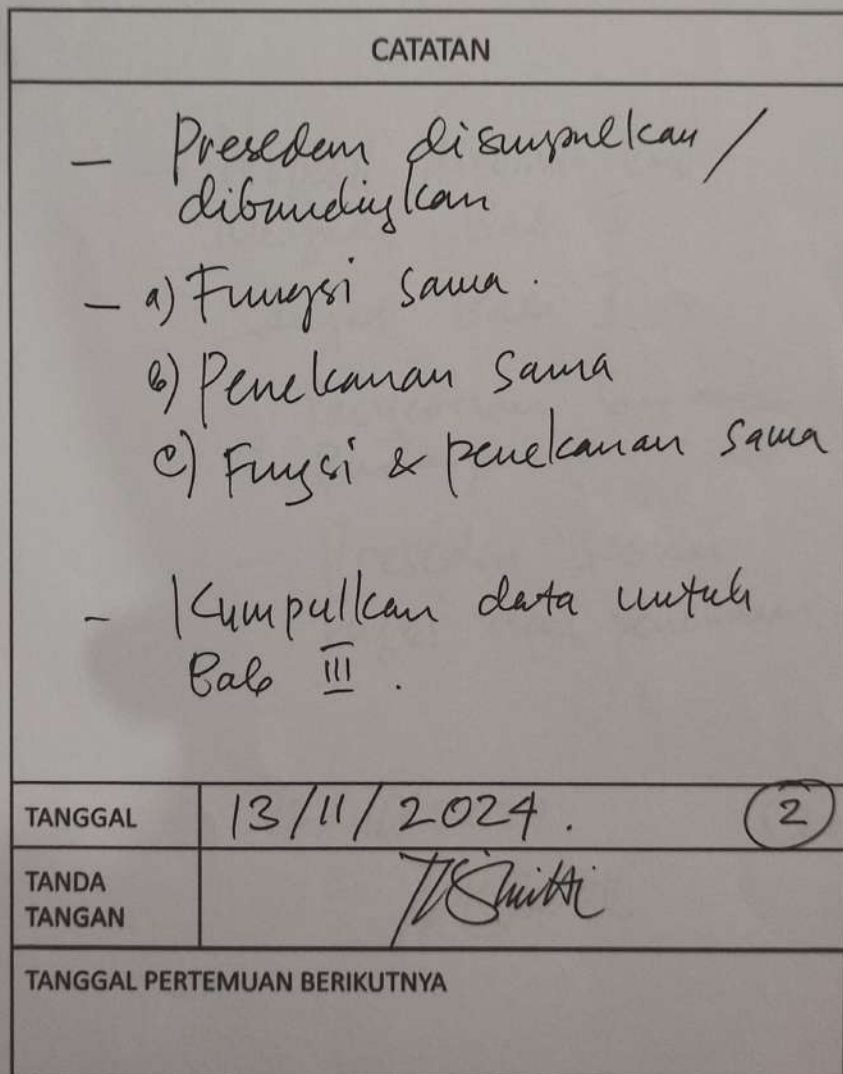 CATATAN
- Preseden disimpulkan /
dibandingkan
- a) Fungsi sama.
b) Penekanan sama
c) Fungsi & penekanan sama
- Kumpulkan data untuk
Bab III.
TANGGAL 13/11/2024. 2
TANDA
TANGAN
TANGGAL PERTEMUAN BERIKUTNYA